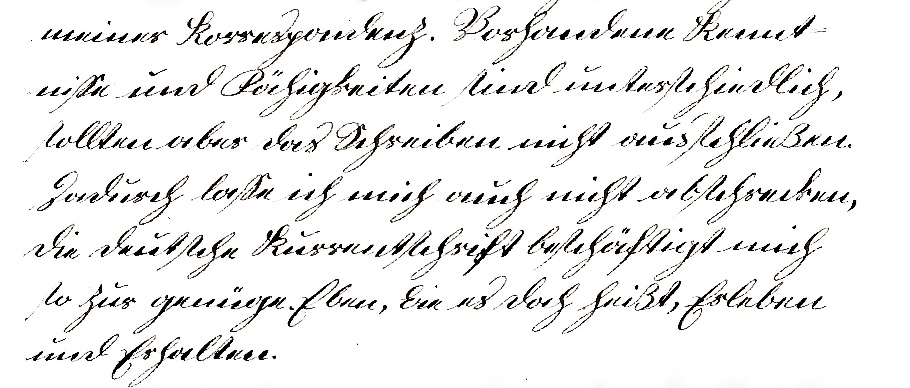 meiner Korrespondenz. Vorhandene Kennt-
nisse und Fähigkeiten sind unterschiedlich,
sollten aber das Schreiben nicht ausschließen.
Dadurch lasse ich mich auch nicht abschrecken,
die deutsche Kurrentschrift beschäftigt mich
so zur genüge. Eben, die es doch heißt, Erleben
und Erhalten.